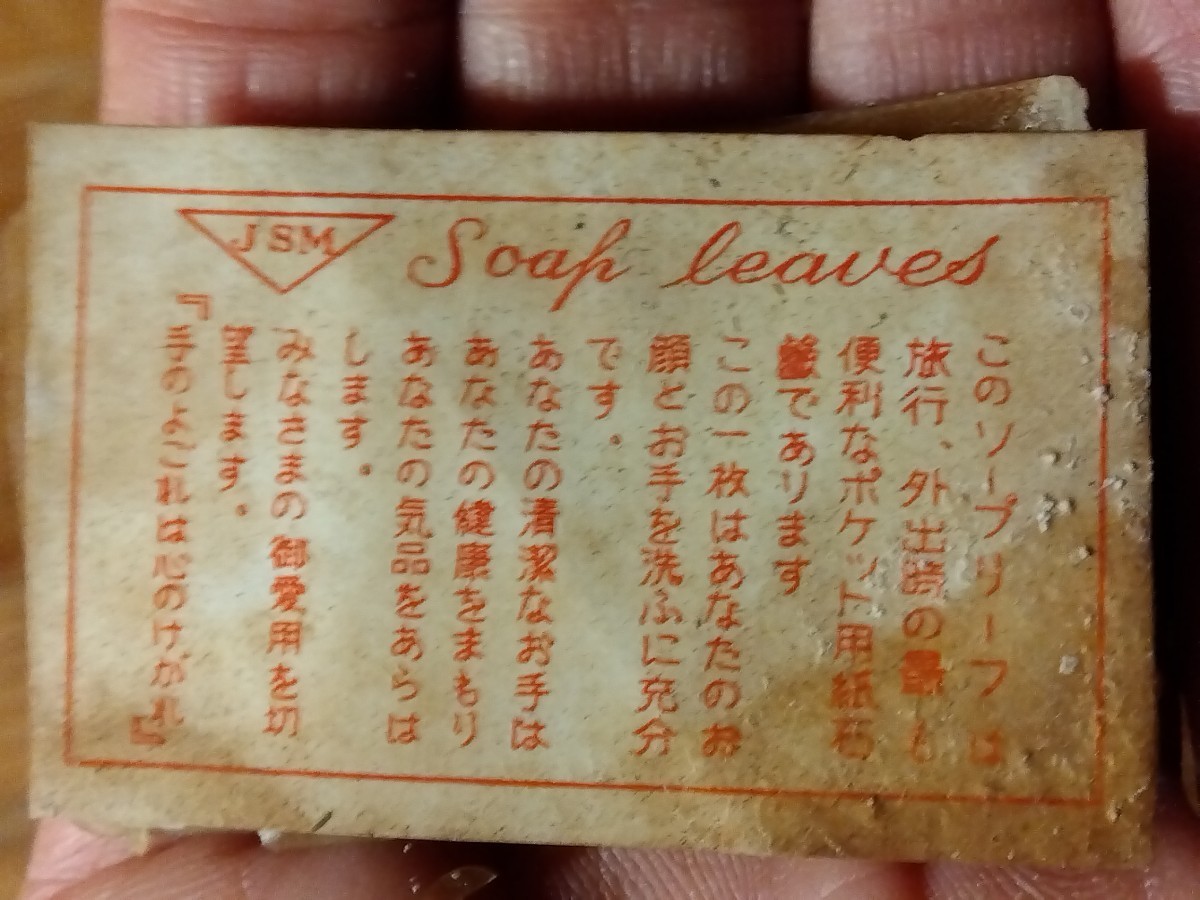 JSM
Soap leaves
このソープリーフは
旅行、外出時の最も
便利なポケット用紙石
鹼であります
この一枚はあなたのお
顔とお手を洗ふに充分
です。
あなたの清潔なお手は
あなたの健康をまもり
あなたの気品をあらは
します。
みなさまの御愛用を切
望します。
『手のよごれは心のけがれ』